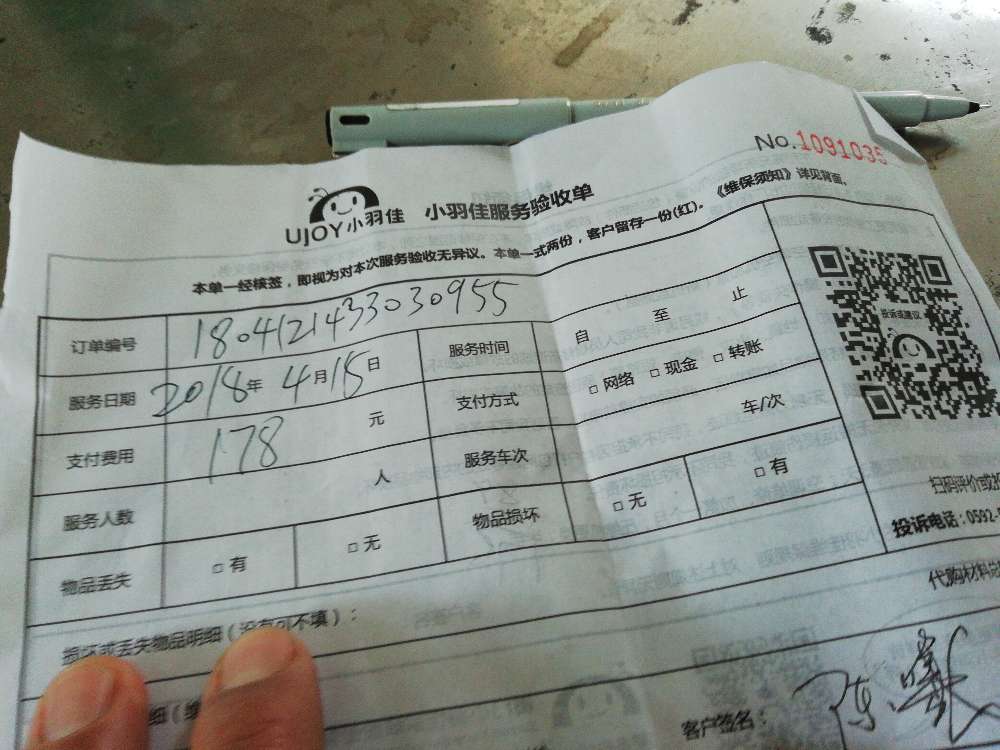 No.1091035
UJOY小羽佳 小羽佳服务验收单
本单一经核签，即视为对本次服务验收无异议。本单一式两份，客户留存一份(红)。《维保须知》详见背面。
订单编号 1804121433030955 服务时间 自 至 止
服务日期 2018年 4月15日 支付方式 □ 网络 □ 现金 □ 转账
支付费用 178 元 服务车次 车/次
服务人数 人 物品损坏 □ 无 □ 有
物品丢失 □ 有 □ 无
投诉或建议
扫码评价或投
投诉电话：0592-
代购材料总
损坏或丢失物品明细（没有可不填）：
细（维
客户签名：